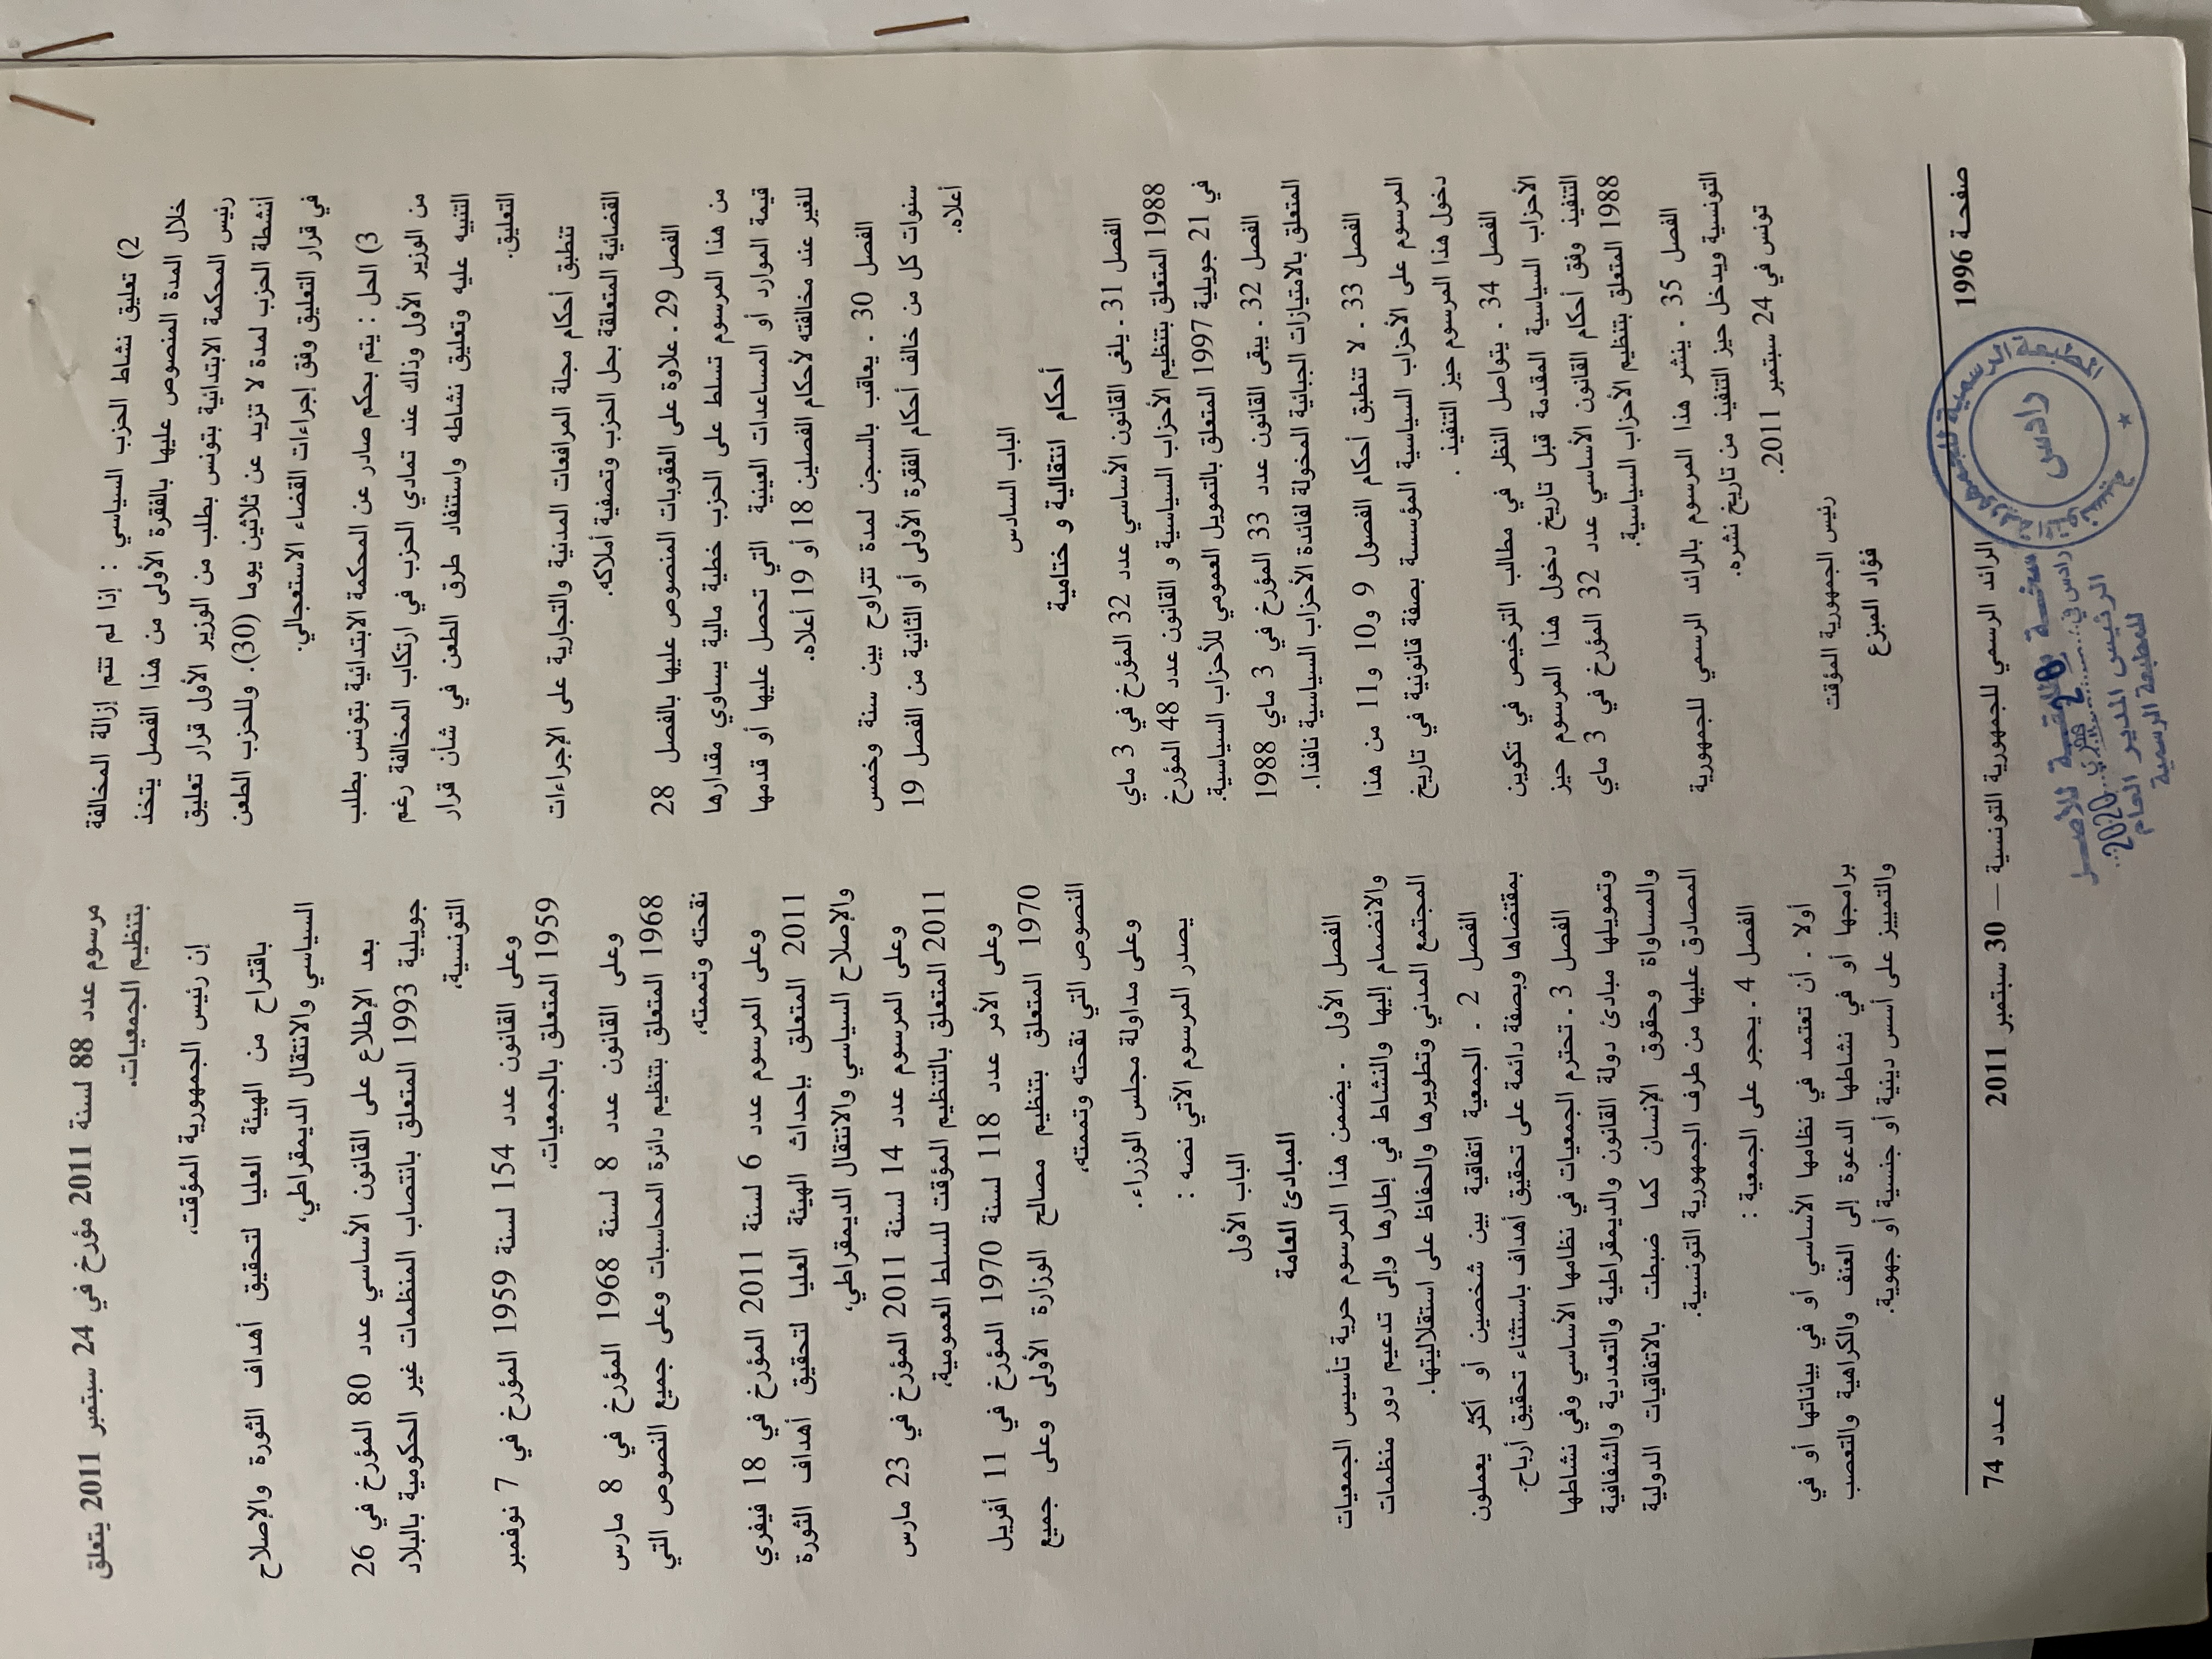 2) تعليق نشاط الحزب السياسي : إذا لم تتم إزالة المخالفة
خلال المدة المنصوص عليها بالفقرة الأولى من هذا الفصل يتخذ
رئيس المحكمة الابتدائية بتونس بطلب من الوزير الأول قرار تعليق
أنشطة الحزب لمدة لا تزيد عن ثلاثين يوما (30). وللحزب الطعن
في قرار التعليق وفق إجراءات القضاء الاستعجالي.
3) الحل : يتم بحكم صادر عن المحكمة الابتدائية بتونس بطلب
من الوزير الأول وذلك عند تمادي الحزب في ارتكاب المخالفة رغم
التنبيه عليه وتعليق نشاطه واستنفاد طرق الطعن في شأن قرار
التعليق.
تنطبق أحكام مجلة المرافعات المدنية والتجارية على الإجراءات
القضائية المتعلقة بحل الحزب وتصفية أملاكه.
الفصل 29 ـ علاوة على العقوبات المنصوص عليها بالفصل 28
من هذا المرسوم تسلط على الحزب خطية مالية يساوي مقدارها
قيمة الموارد أو المساعدات العينية التي تحصل عليها أو قدمها
للغير عند مخالفته لأحكام الفصلين 18 أو 19 أعلاه.
الفصل 30 ـ يعاقب بالسجن لمدة تتراوح بين سنة وخمس
سنوات كل من خالف أحكام الفقرة الأولى أو الثانية من الفصل 19
أعلاه.
الباب السادس
أحكام انتقالية و ختامية
الفصل 31 ـ يلغى القانون الأساسي عدد 32 المؤرخ في 3 ماي
1988 المتعلق بتنظيم الأحزاب السياسية و القانون عدد 48 المؤرخ
في 21 جويلية 1997 المتعلق بالتمويل العمومي للأحزاب السياسية.
الفصل 32 ـ يبقى القانون عدد 33 المؤرخ في 3 ماي 1988
المتعلق بالامتيازات الجبائية المخولة لفائدة الأحزاب السياسية نافذا.
الفصل 33 ـ لا تنطبق أحكام الفصول 9 و10 و11 من هذا
المرسوم على الأحزاب السياسية المؤسسة بصفة قانونية في تاريخ
دخول هذا المرسوم حيز التنفيذ .
الفصل 34 ـ يتواصل النظر في مطالب الترخيص في تكوين
الأحزاب السياسية المقدمة قبل تاريخ دخول هذا المرسوم حيز
التنفيذ وفق أحكام القانون الأساسي عدد 32 المؤرخ في 3 ماي
1988 المتعلق بتنظيم الأحزاب السياسية.
الفصل 35 ـ ينشر هذا المرسوم بالرائد الرسمي للجمهورية
التونسية ويدخل حيز التنفيذ من تاريخ نشره.
تونس في 24 سبتمبر 2011.
رئيس الجمهورية المؤقت
فؤاد المبزع
مرسوم عدد 88 لسنة 2011 مؤرخ في 24 سبتمبر 2011 يتعلق
بتنظيم الجمعيات.
إن رئيس الجمهورية المؤقت،
باقتراح من الهيئة العليا لتحقيق أهداف الثورة والإصلاح
السياسي والانتقال الديمقراطي،
بعد الإطلاع على القانون الأساسي عدد 80 المؤرخ في 26
جويلية 1993 المتعلق بانتصاب المنظمات غير الحكومية بالبلاد
التونسية،
وعلى القانون عدد 154 لسنة 1959 المؤرخ في 7 نوفمبر
1959 المتعلق بالجمعيات،
وعلى القانون عدد 8 لسنة 1968 المؤرخ في 8 مارس
1968 المتعلق بتنظيم دائرة المحاسبات وعلى جميع النصوص التي
نقحته وتممته،
وعلى المرسوم عدد 6 لسنة 2011 المؤرخ في 18 فيفري
2011 المتعلق بإحداث الهيئة العليا لتحقيق أهداف الثورة
والإصلاح السياسي والانتقال الديمقراطي،
وعلى المرسوم عدد 14 لسنة 2011 المؤرخ في 23 مارس
2011 المتعلق بالتنظيم المؤقت للسلط العمومية،
وعلى الأمر عدد 118 لسنة 1970 المؤرخ في 11 أفريل
1970 المتعلق بتنظيم مصالح الوزارة الأولى وعلى جميع
النصوص التي نقحته وتممته،
وعلى مداولة مجلس الوزراء.
يصدر المرسوم الآتي نصه :
الباب الأول
المبادئ العامة
الفصل الأول ـ يضمن هذا المرسوم حرية تأسيس الجمعيات
والانضمام إليها والنشاط في إطارها وإلى تدعيم دور منظمات
المجتمع المدني وتطويرها والحفاظ على استقلاليتها.
الفصل 2 ـ الجمعية اتفاقية بين شخصين أو أكثر يعملون
بمقتضاها وبصفة دائمة على تحقيق أهداف باستثناء تحقيق أرباح.
الفصل 3 ـ تحترم الجمعيات في نظامها الأساسي وفي نشاطها
وتمويلها مبادئ دولة القانون والديمقراطية والتعددية والشفافية
والمساواة وحقوق الإنسان كما ضبطت بالاتفاقيات الدولية
المصادق عليها من طرف الجمهورية التونسية.
الفصل 4 ـ يحجر على الجمعية :
أولا ـ أن تعتمد في نظامها الأساسي أو في بياناتها أو في
برامجها أو في نشاطها الدعوة إلى العنف والكراهية والتعصب
والتمييز على أسس دينية أو جنسية أو جهوية.
صفحة 1996
الرائد الرسمي للجمهورية التونسية — 30 سبتمبر 2011
عـدد 74
المطبعة الرسمية للجمهورية التونسية
رادس
للأصل
رادس في 20 2020
الرئيس المدير العام
للمطبعة الرسمية